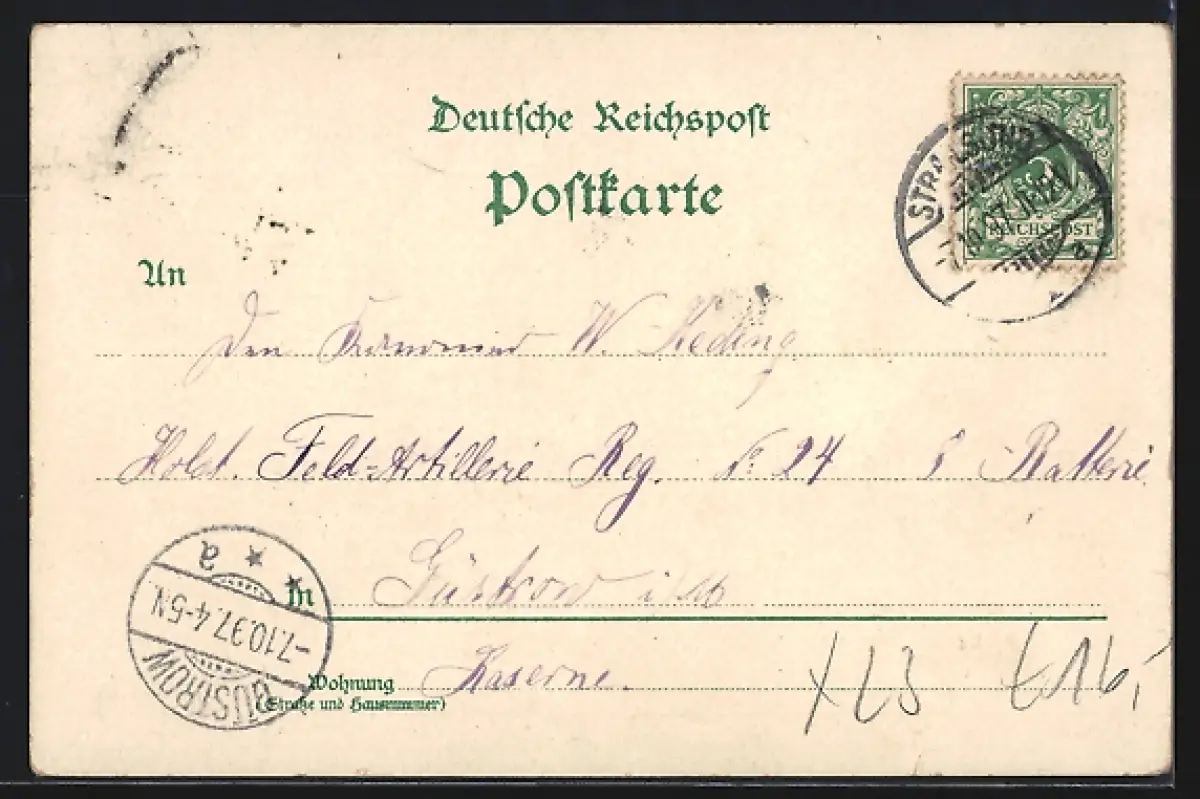 Deutsche Reichspost
Postkarte
STRALSUND
7.10.97. 11-12V
a
REICHSPOST
An
Den Kanonier W. Keding
Holst. Feld-Artillerie Reg. No. 24 5 Batterie
in Güstrow i/M
Wohnung Kaserne.
(Straße und Hausnummer)
GÜSTROW
-7.10.97. 4-5N.
a